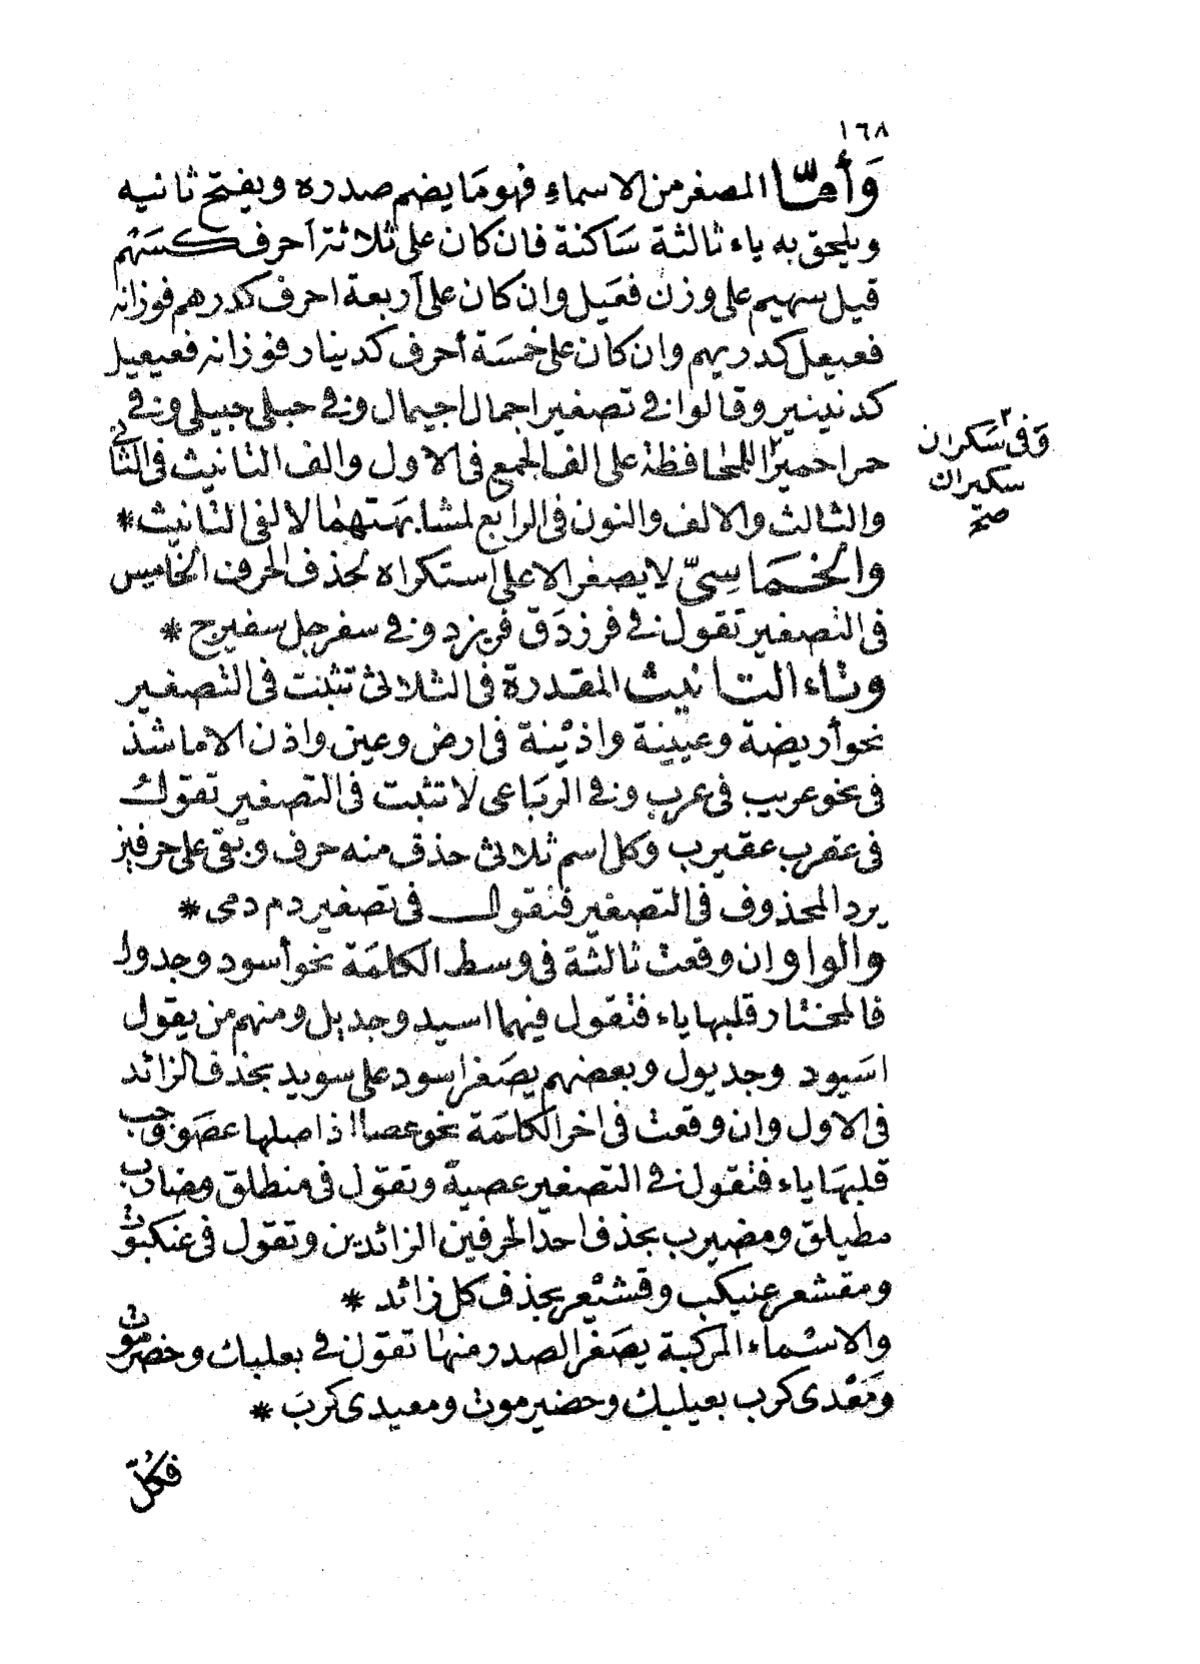 ١٦٨
وَأمّا المصغر من الاسماءِ فهو مَا يضم صدره ويفتح ثانيه
ويلحق به ياء ثالثة سَاكنة فان كان على ثلاثة اَحرف كسَهْم
قيل سهيم على وزن فعَيل وان كان على اَربعة احرف كدرهم فوزانه
فعيعل كدريهم وان كان على خمسَة أحرف كدينار فوزانه فعيعيل
كدنينير وقالوا في تصغير اجمال اجيمال وفي حبلى حبيلى وفي
حمرا حميرا للمحافظة على الف الجمع فى الاول والف التانيث فى الثانى
وفى سَكران
سكيران
صح
والثالث والالف والنون فى الرابع لمشابهَتهما لالفى التانيث *
والخمَاسِىّ لا يصغر الا على استكراه لحذف الحرف الخامس
فى التصغير تقول في فرزدَق فريزد وفي سفرجل سفيرج *
وتاء التانيث المقدرة فى الثلاثى تثبت فى التصغير
نحو أريضة وعيينة واذينة فى ارض وعين واذن الا ما شذ
فى نحو عريب فى عرب وفي الربَاعى لا تثبت فى التصغير تقول
فى عقرب عقيرب وكل اسم ثلاثى حذف منه حرف وبقى على حرفين
يرد المحذوف فى التصغير فنقول فى تصغير دم دمى *
والواو ان وقعت ثالثة فى وسط الكلمَة نحو أسود وجدول
فالمختار قلبها ياء فتقول فيهما اسيد وجديل ومنهم من يقول
اسَيود وجديول وبعضهم يصَغر اسود على سويد بحذف الزائد
فى الاول وان وقعت فى اخر الكلمَة نحو عصا اذ اصلها عصَو وجب
قلبهَا ياء فتقول في التصغير عصية وتقول فى منطلق ومضارب
مطيلق ومضيرب بحذف احد الحرفين الزائدين وتقول فى عنكبوت
ومقشعر عنيكب وقشيْعر بحذف كل زائد *
والاسْماء المركبة يصَغر الصدر منها تقول في بعلبك وحضرموت
ومَعْدى كرب بعيلبك وحضيرموت ومعيدى كربَ *
فكُلّ